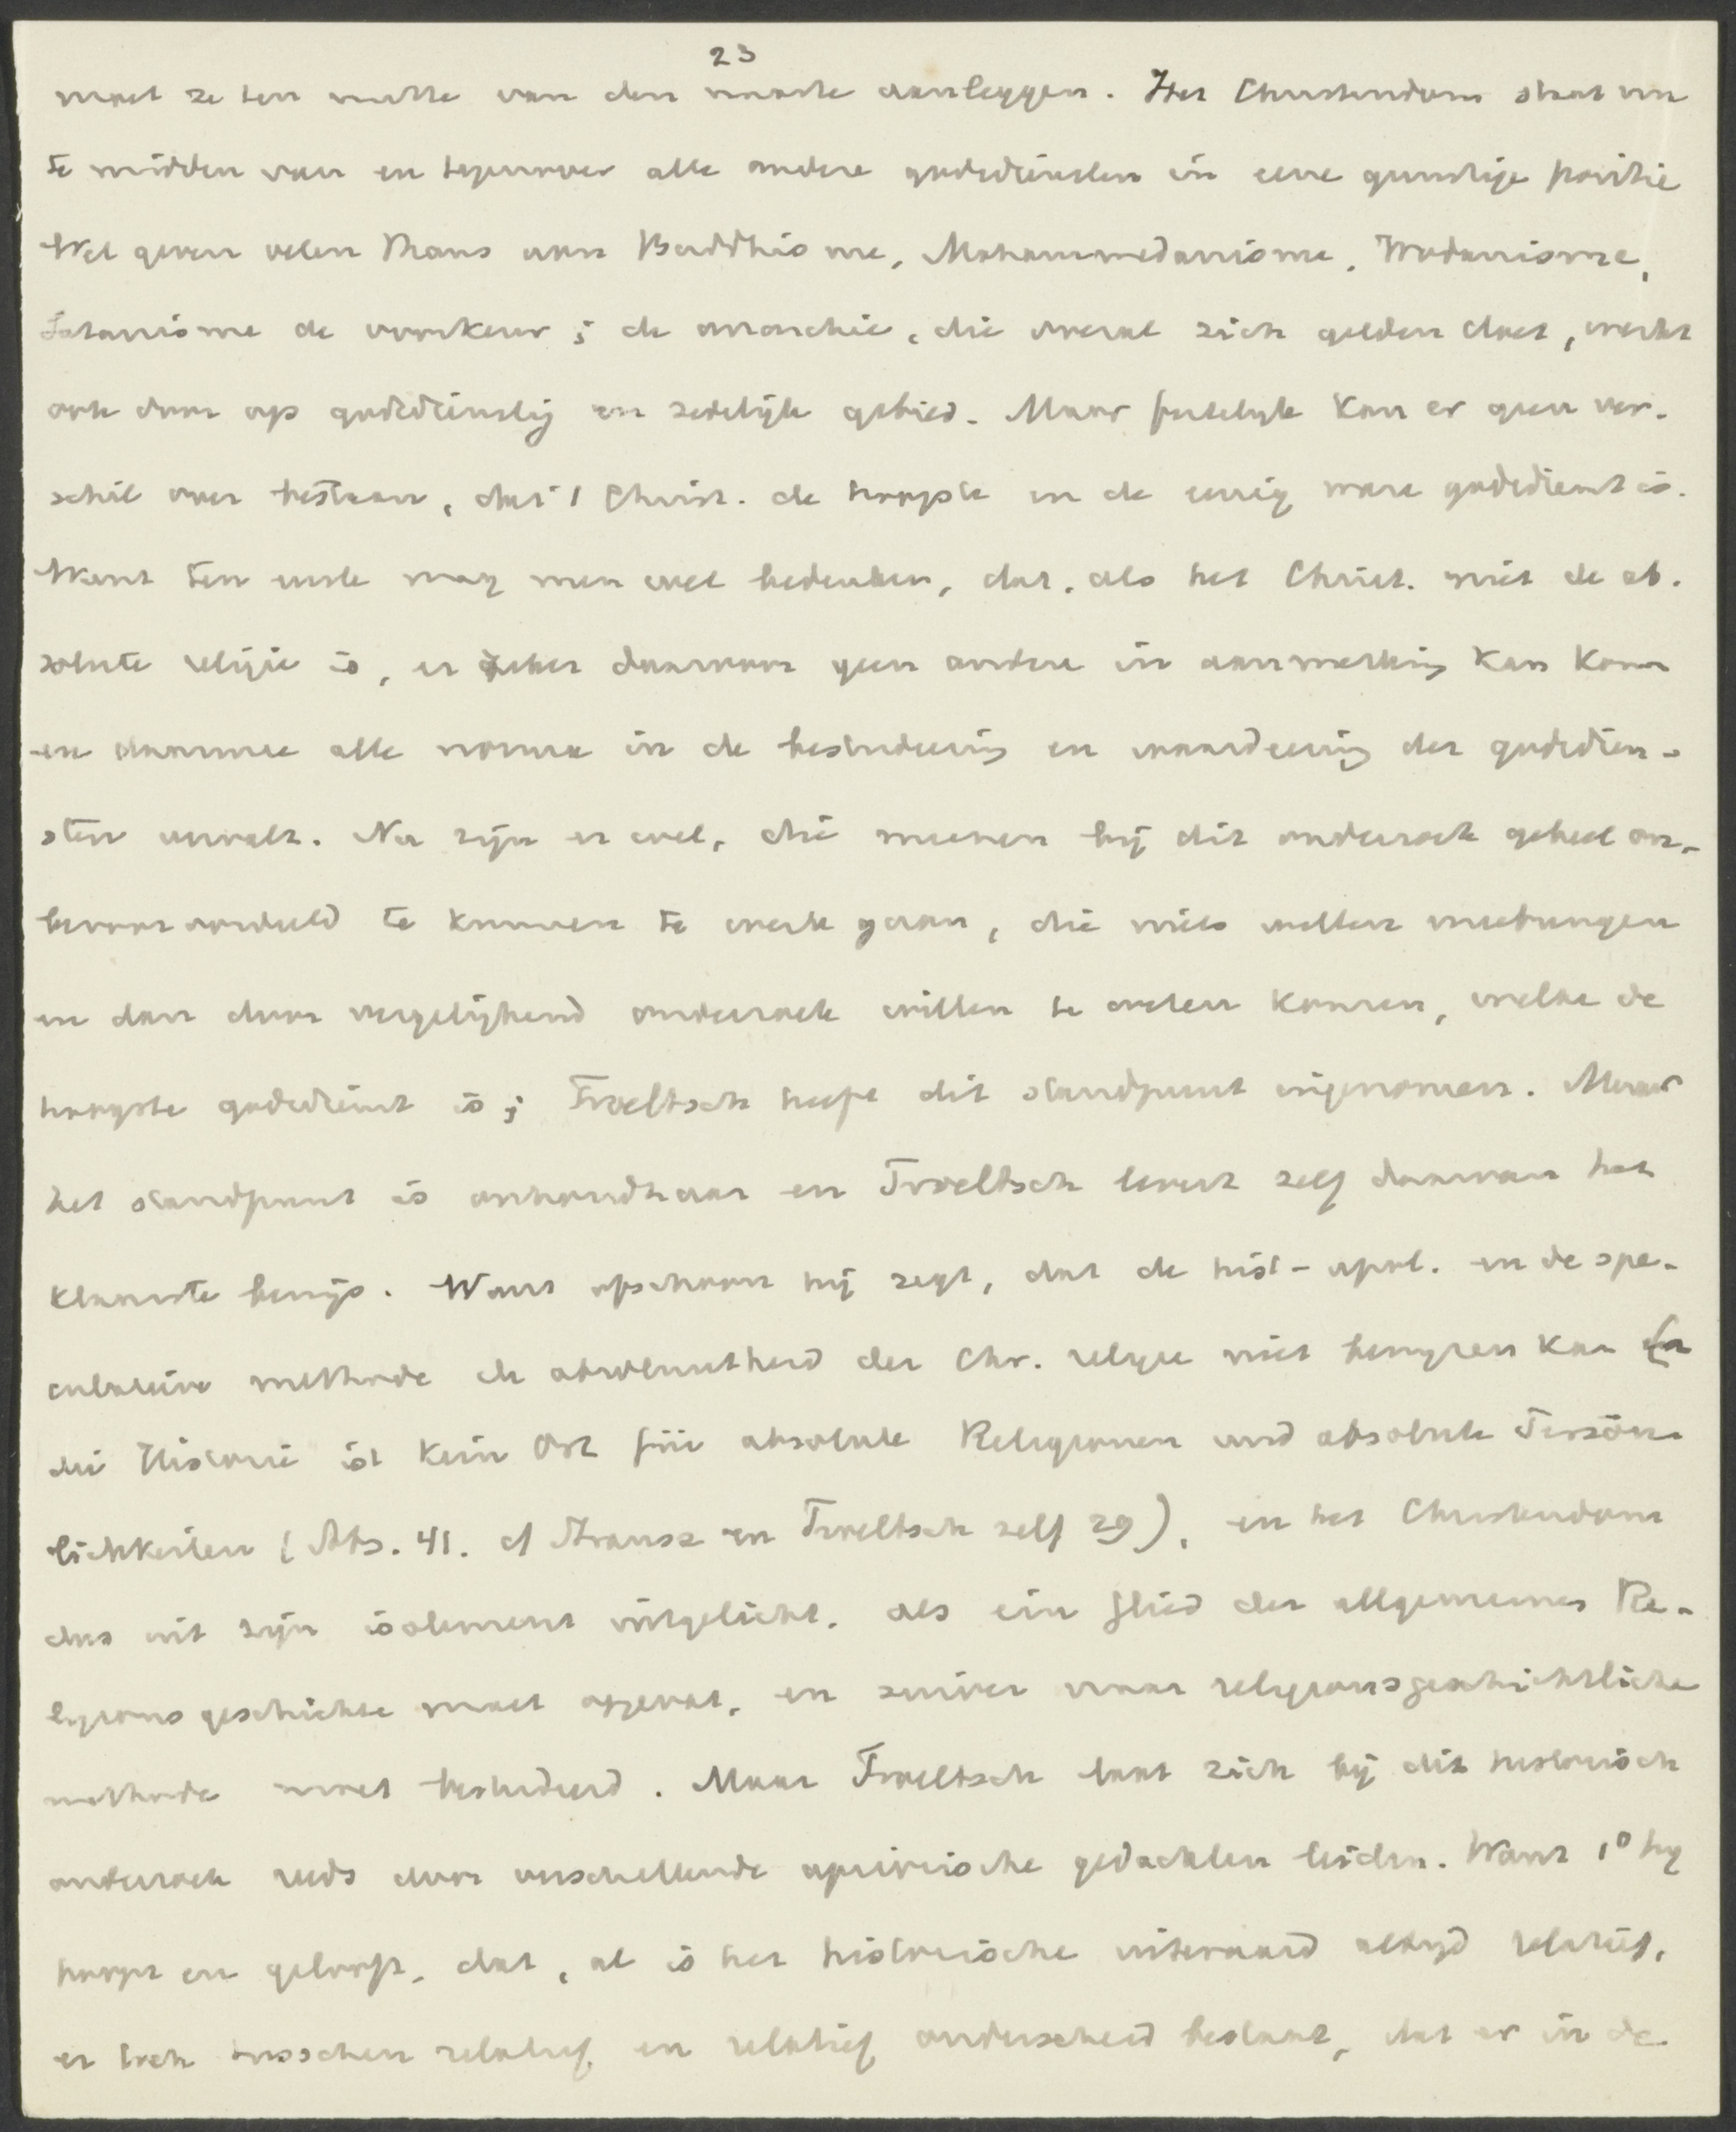 23
moet ze ten nutte van den naaste aanleggen. Het Christendom staat nu
te midden van en tegenover alle andere godsdiensten in eene gunstige positie
Wel geven velen thans aan Buddhisme, Mohammedanisme, Wodanisme,
Satanisme de voorkeur; de anarchie, die overal zich gelden doet, werkt
ook door op godsdienstig en zedelijk gebied. Maar feitelijk kan er geen ver-
schil over bestaan, dat 't Christ. de hoogste en de eenig ware godsdienst is.
Want ten eerste mag men wel bedenken, dat, als het Christ. niet de ab-
solute religie is, er zeker daarvoor geen andere in aanmerking kan komen
en daarmee alle norma in de bestudeering en waardeering der godsdien-
sten vervalt. Nu zijn er wel, die meenen bij dit onderzoek geheel on-
bevooroordeeld te kunnen te werk gaan, die niets willen meebrengen
en dan door vergelijkend onderzoek willen te weten komen, welke de
hoogste godsdienst is; Troeltsch heeft dit standpunt ingenomen. Maar
het standpunt is onhoudbaar en Troeltsch levert zelf daarvan het
klaarste bewijs. Want ofschoon hij zegt, dat de hist-apol. en de spe-
culatieve methode de absoluutheid der Chr. religie niet bewijzen kan (
die Historie ist kein Ort für absolute Religionen und absolute Persön-
lichkeiten (Abs. 41. cf Strausz en Troeltsch zelf 29), en het Christendom
dus uit zijn isolement uitgelicht, als ein Glied der allgemeines Re-
ligionsgeschichte moet opgevat, en zuiver naar religionsgeschichtliche
methode moet bestudeerd. Maar Troeltsch laat zich bij dit historisch
onderzoek reeds door verschillende aprioristische gedachten leiden. Want 1º hij
hoopt en gelooft, dat, al is het historische uiteraard altijd relatief,
er toch tusschen relatief en relatief onderscheid bestaat, dat er in de